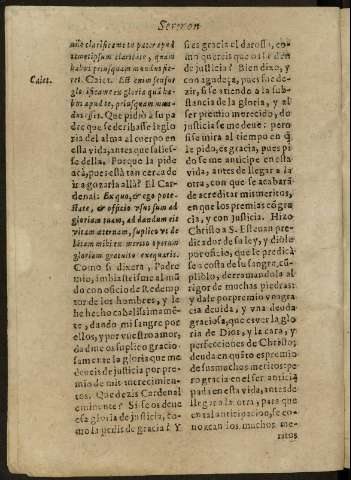 Sermon
Caiet.
me clarificante tu pater apud
temetipsum claritate, quam
habui priusquam mundus fie-
ret. Caiet. Est enim sensus
glorificame ex gloria quã ha-
bui apud te, priusquam mun-
dus esset. Que pidiò a su pa-
dre que se derivasse la glo-
ria del alma al cuerpo en
esta vida, antes que saliesse
della. Porque la pide
acà, pues està tan cerca de
ir a gozarla allà? El Car-
denal. Ex quo, & ego pote-
state, & officio vsus sum ad
gloriam tuam, ad dandum eis
vitam æternam, suplico vt de-
bitam mihi ex merito operum
gloriam gratuito exequaris.
Como si dixera, Padre
mio, imbiasteisme al mũ-
do con oficio de Redemp
tor de los hombres, y le
he hecho cabalissimamẽ-
te, dando mi sangre por
ellos, y por vuestro amor,
dadme os suplico gracio-
samente la gloria que me
deueis de justicia por pre-
mio de mis merecimien-
tos. Que dezis Cardenal
eminente? Si se os deue
essa gloria de justicia, co-
mo la pedis de gracia? Y
si es gracia el darosla, co-
mo quereis que os le dẽn
de justicia? Bien dixo, y
con agudeça, pues fue de-
zir, si se atiende a la sub-
stancia de la gloria, y al
ser premio merecido, do
justicia se me deue: pero
si se mira al tiempo en q̃
le pido, es gracia, pues pi
do se me anticipe en esta
vida, antes de llegar a la
otra, con que se acabarà
de acreditar mis meritos,
en que los premies cõ gra
cia, y con justicia. Hizo
Christo a S. Esteuan pre-
dicador de su ley, y diole
por oficio, que le predicà
se a costa de su sangre, cũ-
pliòlo, derramandola al
rigor de muchas piedras:
y dale por premio vna gra
cia deuida, y vna deuda
graciosa, que es ver la glo
ria de Dios, y la cara, y
perfecciones de Christo;
deuda en quãto es premio
de sus muchos meritos: pe
ro gracia en el ser antici-
pada en esta vida, antes de
llegar a la otra, para que
en tal anticipacion, se co-
nozcan los muchos me-
ritos